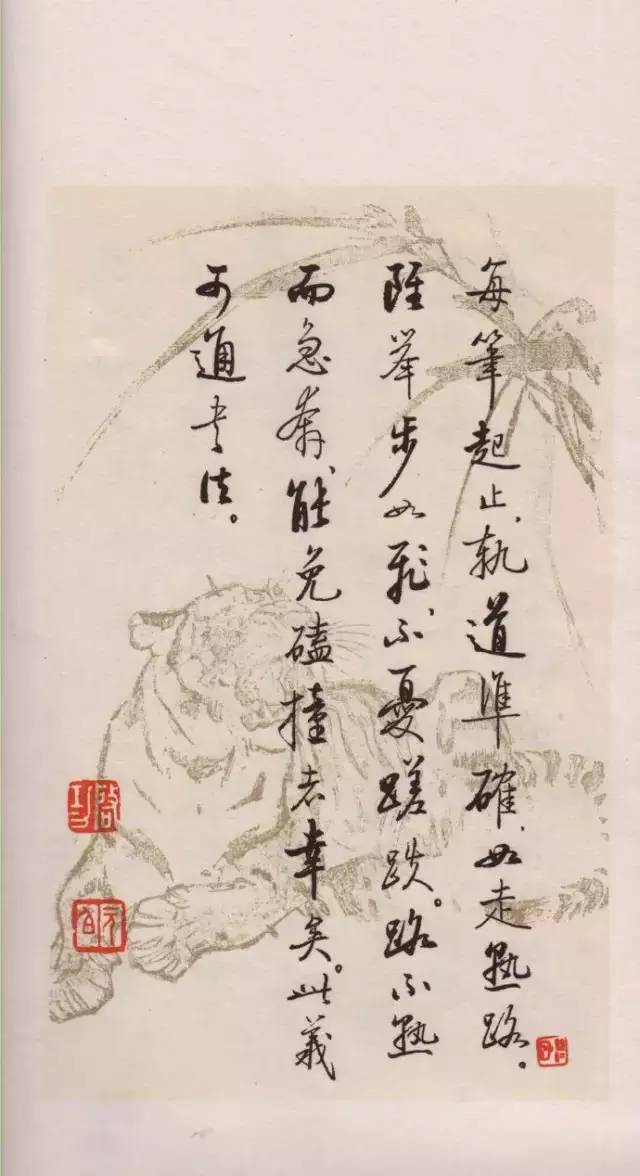 每筆起止，軌道準確，如走熟路。
雖舉步如飛，不憂蹉跌。路不熟
而急奔，能免磕撞者幸矣。此義
可通書法。